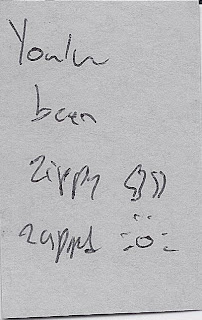 You've
been
zippy
zapped